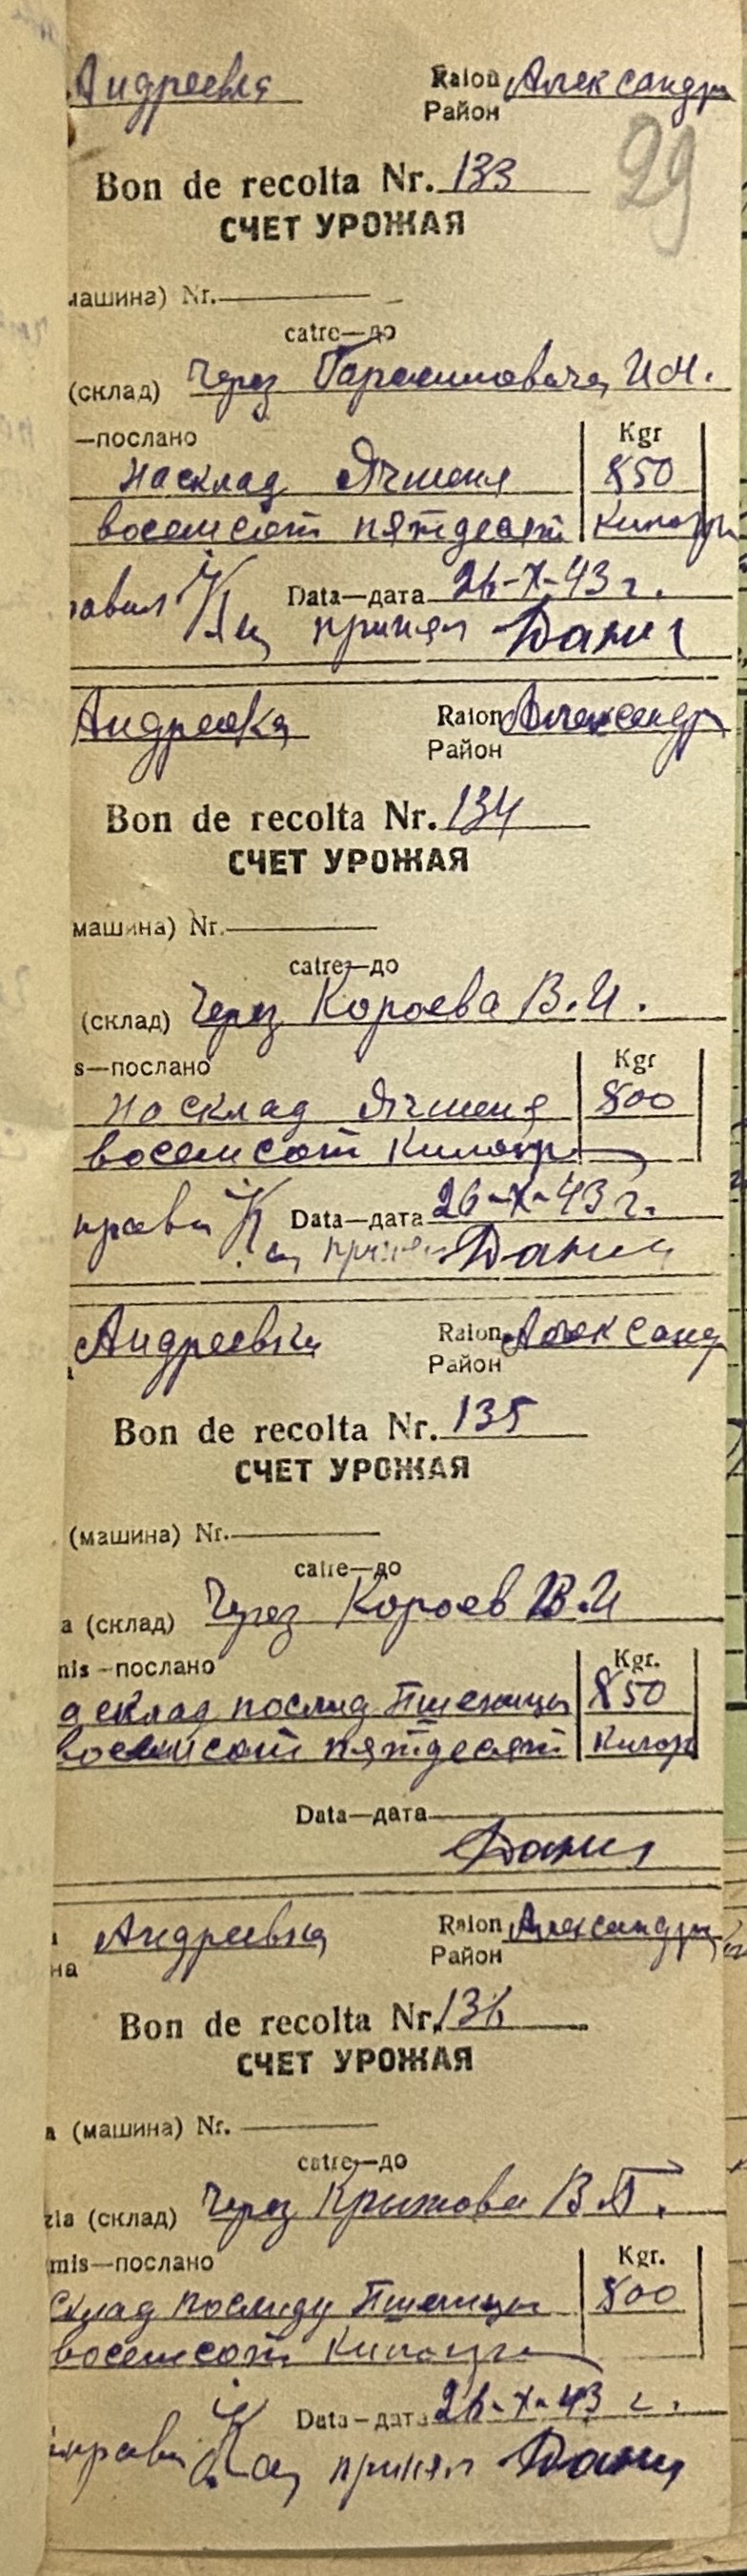 Андреевка Raion Александр
Район
29
Bon de recolta Nr. 133
СЧЕТ УРОЖАЯ
машина) Nr.
catre—до
(склад) Через И.
—послано Kgr
на склад Ячменя 850
восемсот пятдесят Килогр
Data—дата 26-X-43 г.
принял Данил
Андреевка Raion Александр
Район
Bon de recolta Nr. 134
СЧЕТ УРОЖАЯ
машина) Nr.
catre—до
(склад) Через Короева В.И.
s—послано Kgr
на склад Ячменя 800
восемсот Килогр
Data—дата 26-X-43 г.
прави принял Данил
Андреевка Raion Александ
Район
Bon de recolta Nr. 135
СЧЕТ УРОЖАЯ
(машина) Nr.
catre—до
a (склад) Через Короев В.И
nis—послано Kgr.
а склад послид Пшеницы 850
восемсот пятдесят Килогр
Data—дата
Данил
Андреевка Raion Александр
на Район
Bon de recolta Nr. 136
СЧЕТ УРОЖАЯ
a (машина) Nr.
catre—до
zia (склад) Через Крыжова В.П.
mis—послано Kgr.
склад послиду Пшеницы 800
восемсот Килогр
Data—дата 26-X-43 г.
прави принял Данил